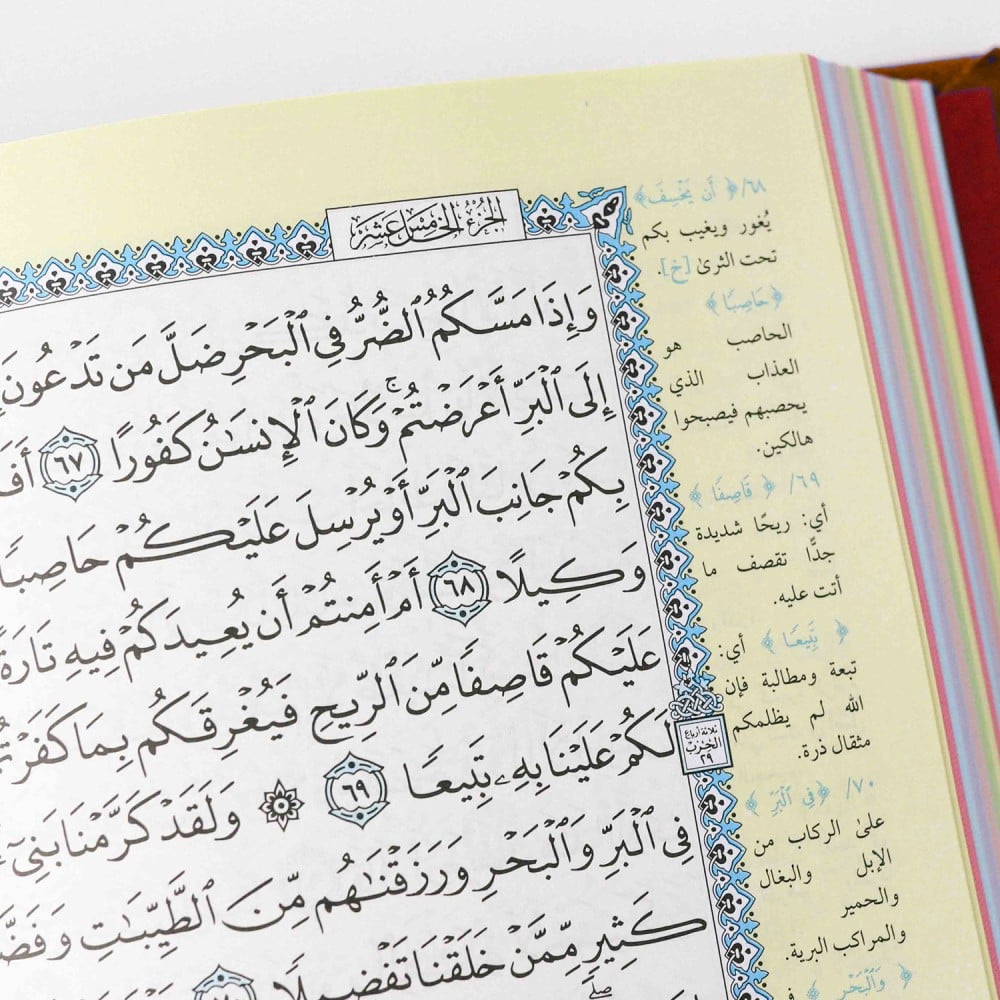 الجزء الخامس عشر
وَإِذَا مَسَّكُمُ ٱلضُّرُّ فِي ٱلْبَحْرِ ضَلَّ مَن تَدْعُونَ
إِلَى ٱلْبَرِّ أَعْرَضْتُمْ ۚ وَكَانَ ٱلْإِنسَٰنُ كَفُورًا ٦٧
بِكُمْ جَانِبَ ٱلْبَرِّ أَوْ يُرْسِلَ عَلَيْكُمْ حَاصِبًا
وَكِيلًا ٦٨ أَمْ أَمِنتُمْ أَن يُعِيدَكُمْ فِيهِ تَارَةً
عَلَيْكُمْ قَاصِفًا مِّنَ ٱلرِّيحِ فَيُغْرِقَكُم بِمَا كَفَرْتُمْ
لَكُمْ عَلَيْنَا بِهِۦ تَبِيعًا ٦٩ ۞ وَلَقَدْ كَرَّمْنَا بَنِىٓ
فِي ٱلْبَرِّ وَٱلْبَحْرِ وَرَزَقْنَٰهُم مِّنَ ٱلطَّيِّبَٰتِ
كَثِيرٍ مِّمَّنْ خَلَقْنَا تَفْضِيلًا ٧٠
ثلاثة أرباع
الحزب
٢٩
٦٨/ ﴿أَن يَخْسِفَ﴾
يُغور ويغيب بكم
تحت الثرىٰ [خ].
﴿حَاصِبًا﴾
الحاصب هو
العذاب الذي
يحصبهم فيصبحوا
هالكين.
٦٩/ ﴿قَاصِفًا﴾
أي: ريحًا شديدة
جدًّا تقصف ما
أتت عليه.
﴿تَبِيعًا﴾ أي:
تبعة ومطالبة فإن
الله لم يظلمكم
مثقال ذرة.
٧٠/ ﴿فِي ٱلْبَرِّ﴾
علىٰ الركاب من
الإبل والبغال
والحمير
والمراكب البرية.
﴿وَٱلْبَحْرِ﴾ في